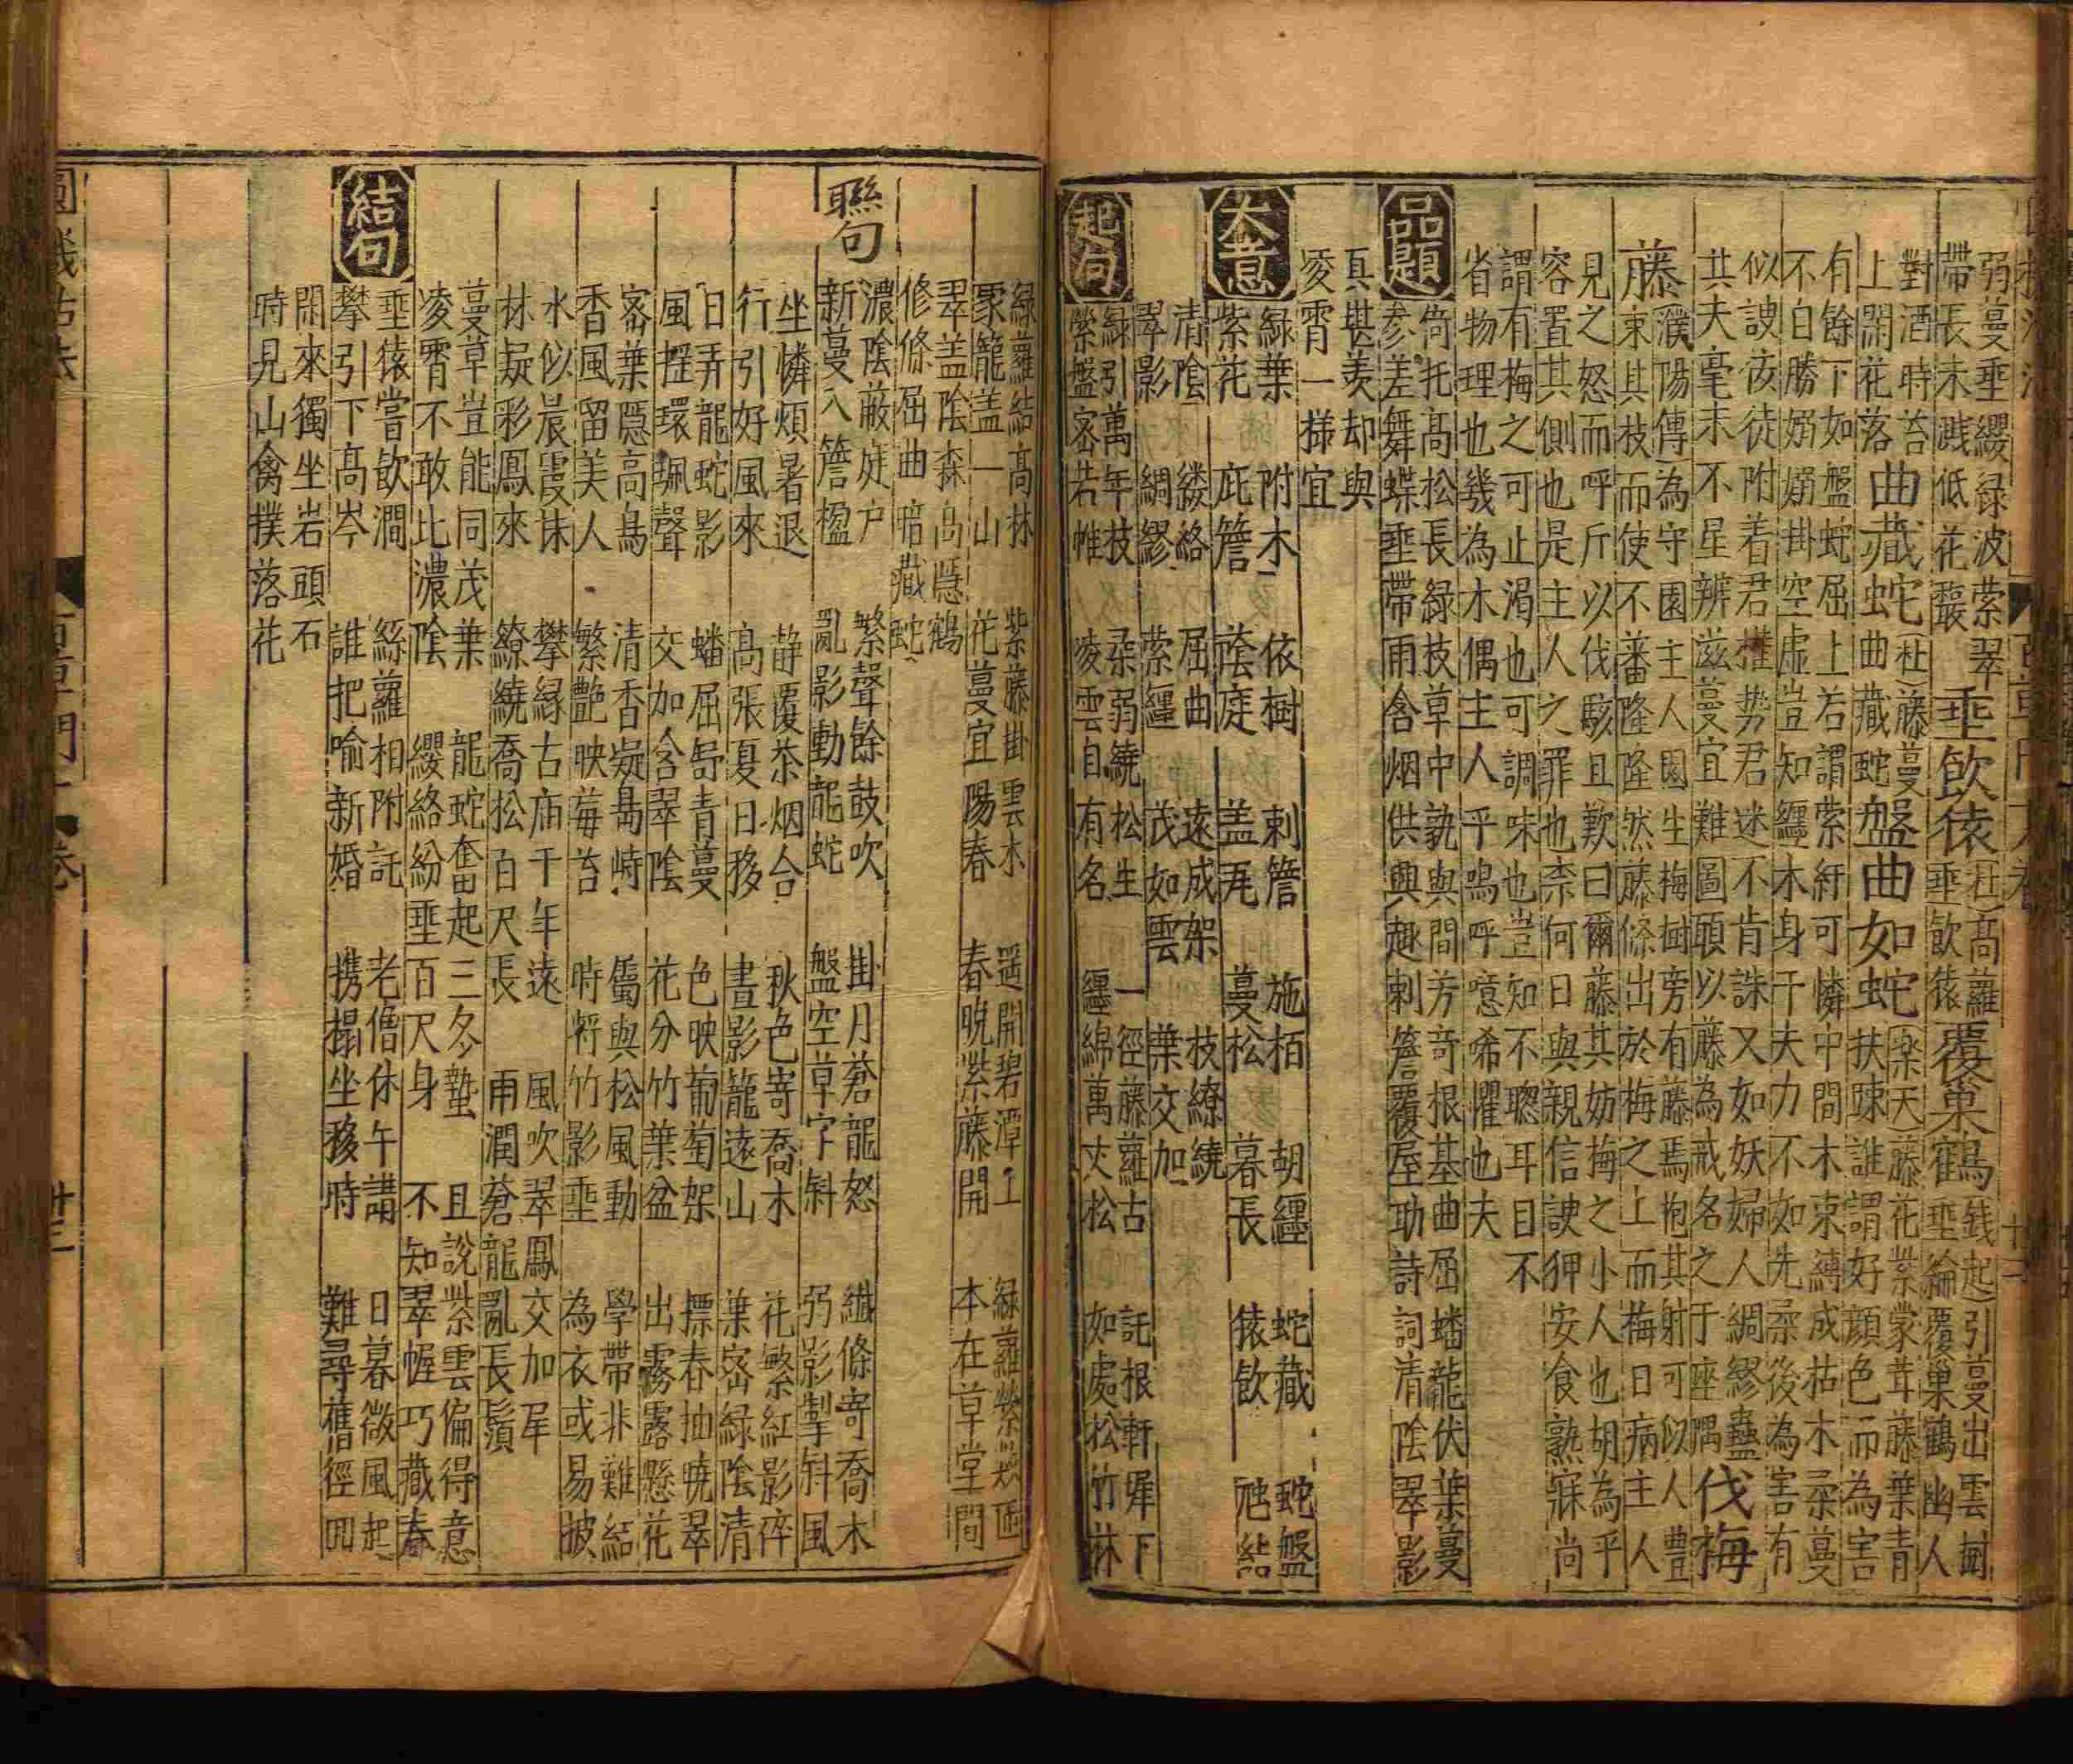 弱蔓垂纓緑波縈翠
帶長未戝低花馥
垂飲猿
杜
高蘿
垂飲猿
覆巢鶴
錢起
引蔓出雲樹
垂綸覆巢鶴幽人
對酒時苔
上閑花落
曲藏蛇
杜
藤蔓
曲藏蛇
盤曲如蛇
樂天
藤花紫蒙茸藤葉青
扶踈誰謂好顔色而為害
有餘下如盤蛇屈上若縈紆可憐中間木束縛成枯木柔蔓
不自勝嫋嫋掛空虚豈知纒木身千夫力不如先柔後為害有
似諛佞徒附着君權势君迷不肯誅又如妖婦人綢繆蠱
其夫毫末不星辨滋蔓宜難圖頭以藤為戒名之于座隅
伐梅
藤
濮陽傳為守園主人園生梅樹旁有藤焉抱其射可似人豊
束其枝而使不蕃隆隆然藤條出於梅之上而梅日病主人
見之怒而呼斤以伐駭且歎曰爾藤其妨梅之小人也胡為乎
容置其側也是主人之罪也柰何日與親信諛狎安食熟寐尚
謂有梅之可止渴也可調味也豈知不聰耳目不
省物理也幾為木偶主人乎嗚呼噫唏懼也夫
品題
倚托高松長緑枝草中孰與間芳奇根基曲屈蟠龍伏葉蔓
參差舞蝶垂帶雨含烟供興趣刺簷覆屋助詩詞清陰翠影
真堪羡却與
凌霄一様宜
大意
緑葉
紫花
附木
庇簷
依樹
蔭庭
刺簷
盖瓦
施栢
蔓松
胡纒
暮長
蛇藏
猿飲
蛇盤
虺結
清陰
翠影
縷絡
綢繆
屈曲
縈纒
遠成架
茂如雲
枝繚繞
葉交加
起句
緑引萬年枝
縈盤密若帷
柔弱繞松生
凌雲自有名
一徑藤蘿古
纒綿萬丈松
託根軒墀下
如處松竹林
緑蘿結高林
冡籠盖一山
紫藤掛雲木
花蔓宜陽春
遥開碧潭上
春晩紫藤開
緑蘿縈
本在草堂間
翠盖陰森高隱鶴
修條屈曲暗藏蛇
聯句
濃陰蔽庭户
新蔓入簷楹
繁聲餘鼓吹
亂影動龍蛇
掛月蒼龍怒
盤空草字斜
纎條寄喬木
弱影掣斜風
坐憐煩暑退
行引好風來
静覆茶烟合
高張夏日移
秋色寄喬木
晝影籠遠山
花繁紅影碎
葉密緑陰清
日弄龍蛇影
風揺環珮聲
蟠屈昻青蔓
交加含翠陰
色映葡萄架
花分竹葉盆
摽春抽曉翠
出霧露懸花
密葉隱高鳥
香風留美人
清香凝昜峙
繁艶映莓苔
屬與松風動
時將竹影垂
學帶非難結
為衣或易披
水似晨霞抹
林疑彩鳳來
攀縁古庙千年遠
繚繞喬松百尺長
風吹翠鳳交加尾
雨潤蒼龍亂長鬚
蔓草豈能同茂葉
凌霄不敢比濃陰
龍蛇奮起三冬蟄
纓絡紛垂百尺身
且說紫雲偏得意
不知翠幄巧藏春
結句
垂猿嘗飲澗
攀引下高岑
絲蘿相附託
誰把喻新婚
老僧休午講
携榻坐移時
日暮微風起
難尋舊徑回
閑來獨坐岩頭石
時見山禽撲落花